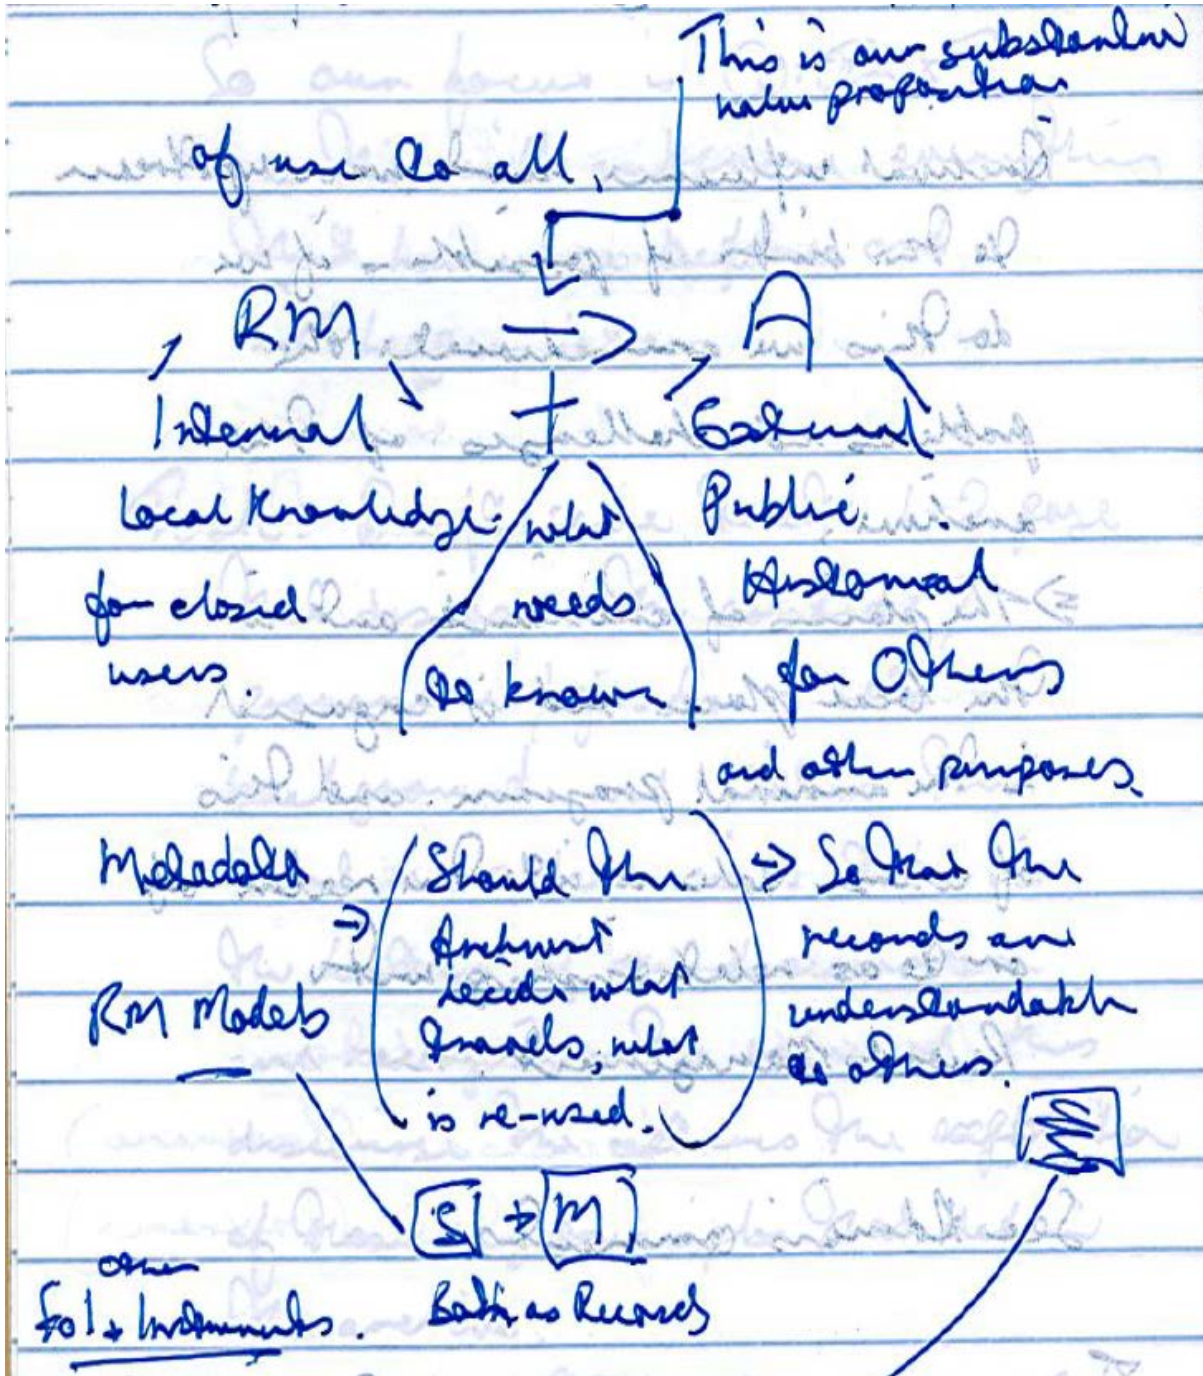 This is our substantive
value proposition
of use to all.
RM → A
Internal + External
Local Knowledge
for closed
users.
what
needs
to known
Public
Historical
for Others
and other purposes.
Metadata
→
RM Models
(Should the
Archivist
decide what
travels, what
is re-used.)
→ So that the
records are
understandable
to others.
S → M
Both as Records
other
FoI + Instruments.